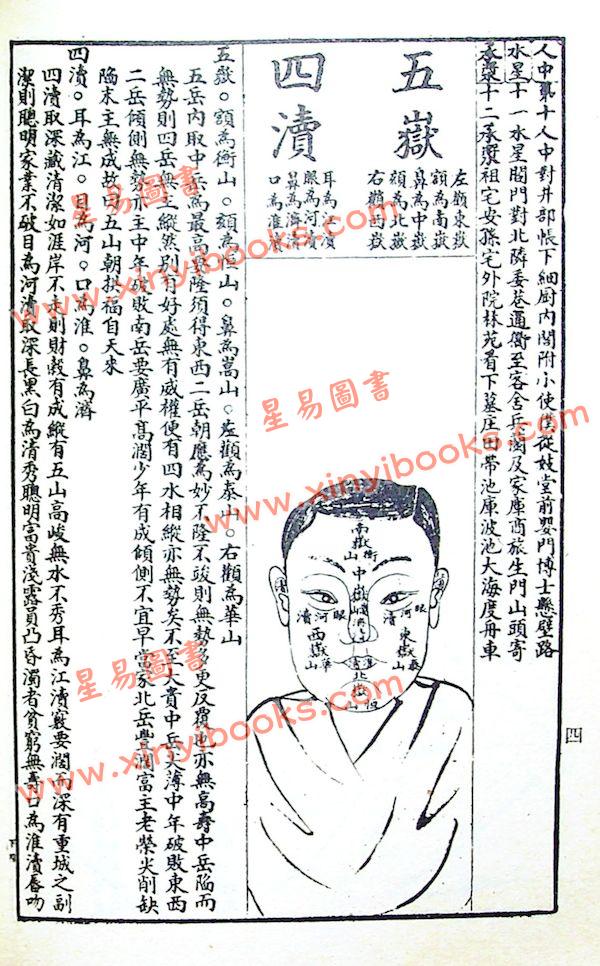 人中第十人中對井部帳下細厨内閣附小使僕從妓堂前嬰門博士懸壁路
水星十一水星閣門對北隣委巷通衢至客舍兵蘭及家庫商旅生門山頭寄
承漿十二承漿祖宅安孫宅外院林苑看下墓庄田帶池庫波池大海度舟車
五嶽
左顴東嶽
額為南嶽
鼻為中嶽
頦為北嶽
右顴西嶽
四瀆
耳為江瀆
眼為河瀆
鼻為濟瀆
口為淮瀆
南嶽
衡山
中嶽
眼河瀆
眼河瀆
東嶽
泰山
西嶽
華山
北嶽
恒山
五嶽。額為衡山。頦為恒山。鼻為嵩山。左顴為泰山。右顴為華山
五岳内取中岳為最高聳隆須得東西二岳朝應為妙不隆不峻則無勢多更反覆也亦無高壽中岳陷而
無勢則四岳無主縱然別有好處無有威權便有四水相縱亦無勢矣不至大貴中岳尖薄中年破敗東西
二岳傾側無勢亦主中年破敗南岳要廣平高濶少年有成傾側不宜早當家北岳豊濶富主老榮尖削缺
陷末主無成故曰五山朝拱福自天來
四瀆。耳為江。目為河。口為淮。鼻為濟
四瀆取深藏清潔如涯岸不走則財穀有成縱有五山高峻無水不秀耳為江瀆竅要濶而深有重城之副
潔則聰明家業不破目為河瀆取深長黑白為清秀聰明富貴淺露員凸昏濁者貧窮無壽口為淮瀆唇吻
四
星易圖書
www.xinyibooks.com
星易圖書
www.xinyibooks.com
星易圖書
www.xinyibooks.com